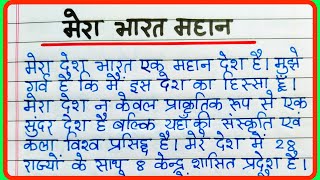 मेरा भारत महान
मेरा देश भारत एक महान देश है। मुझे
गर्व है कि मैं इस देश का हिस्सा हूँ।
मेरा देश न केवल प्राकृतिक रूप से एक
सुंदर देश है बल्कि यहाँ की संस्कृति एवं
कला विश्व प्रसिद्ध है। मेरे देश में 28
राज्यों के साथ 8 केन्द्र शासित प्रदेश है।